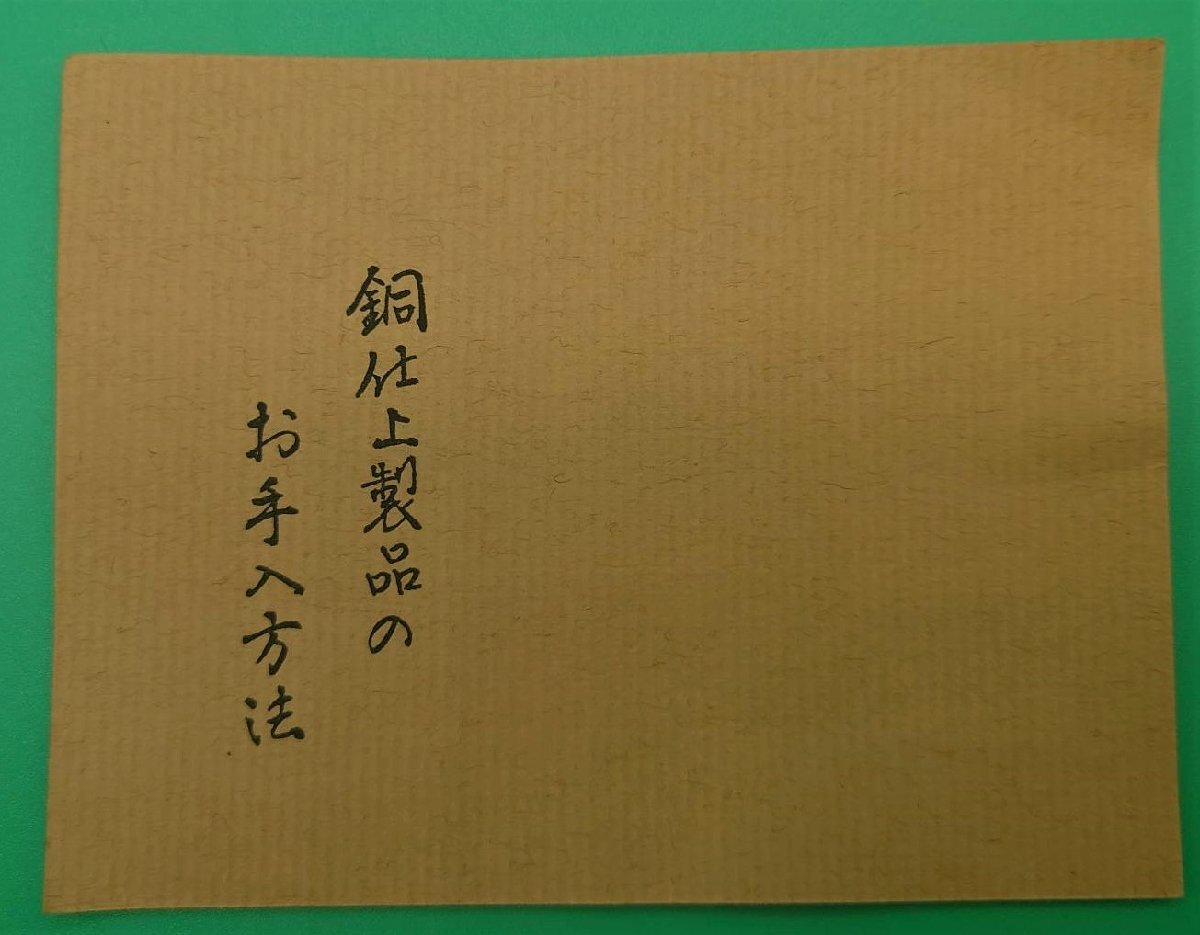 銅仕上製品の
お手入方法